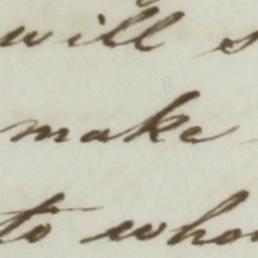 will s
make
to who